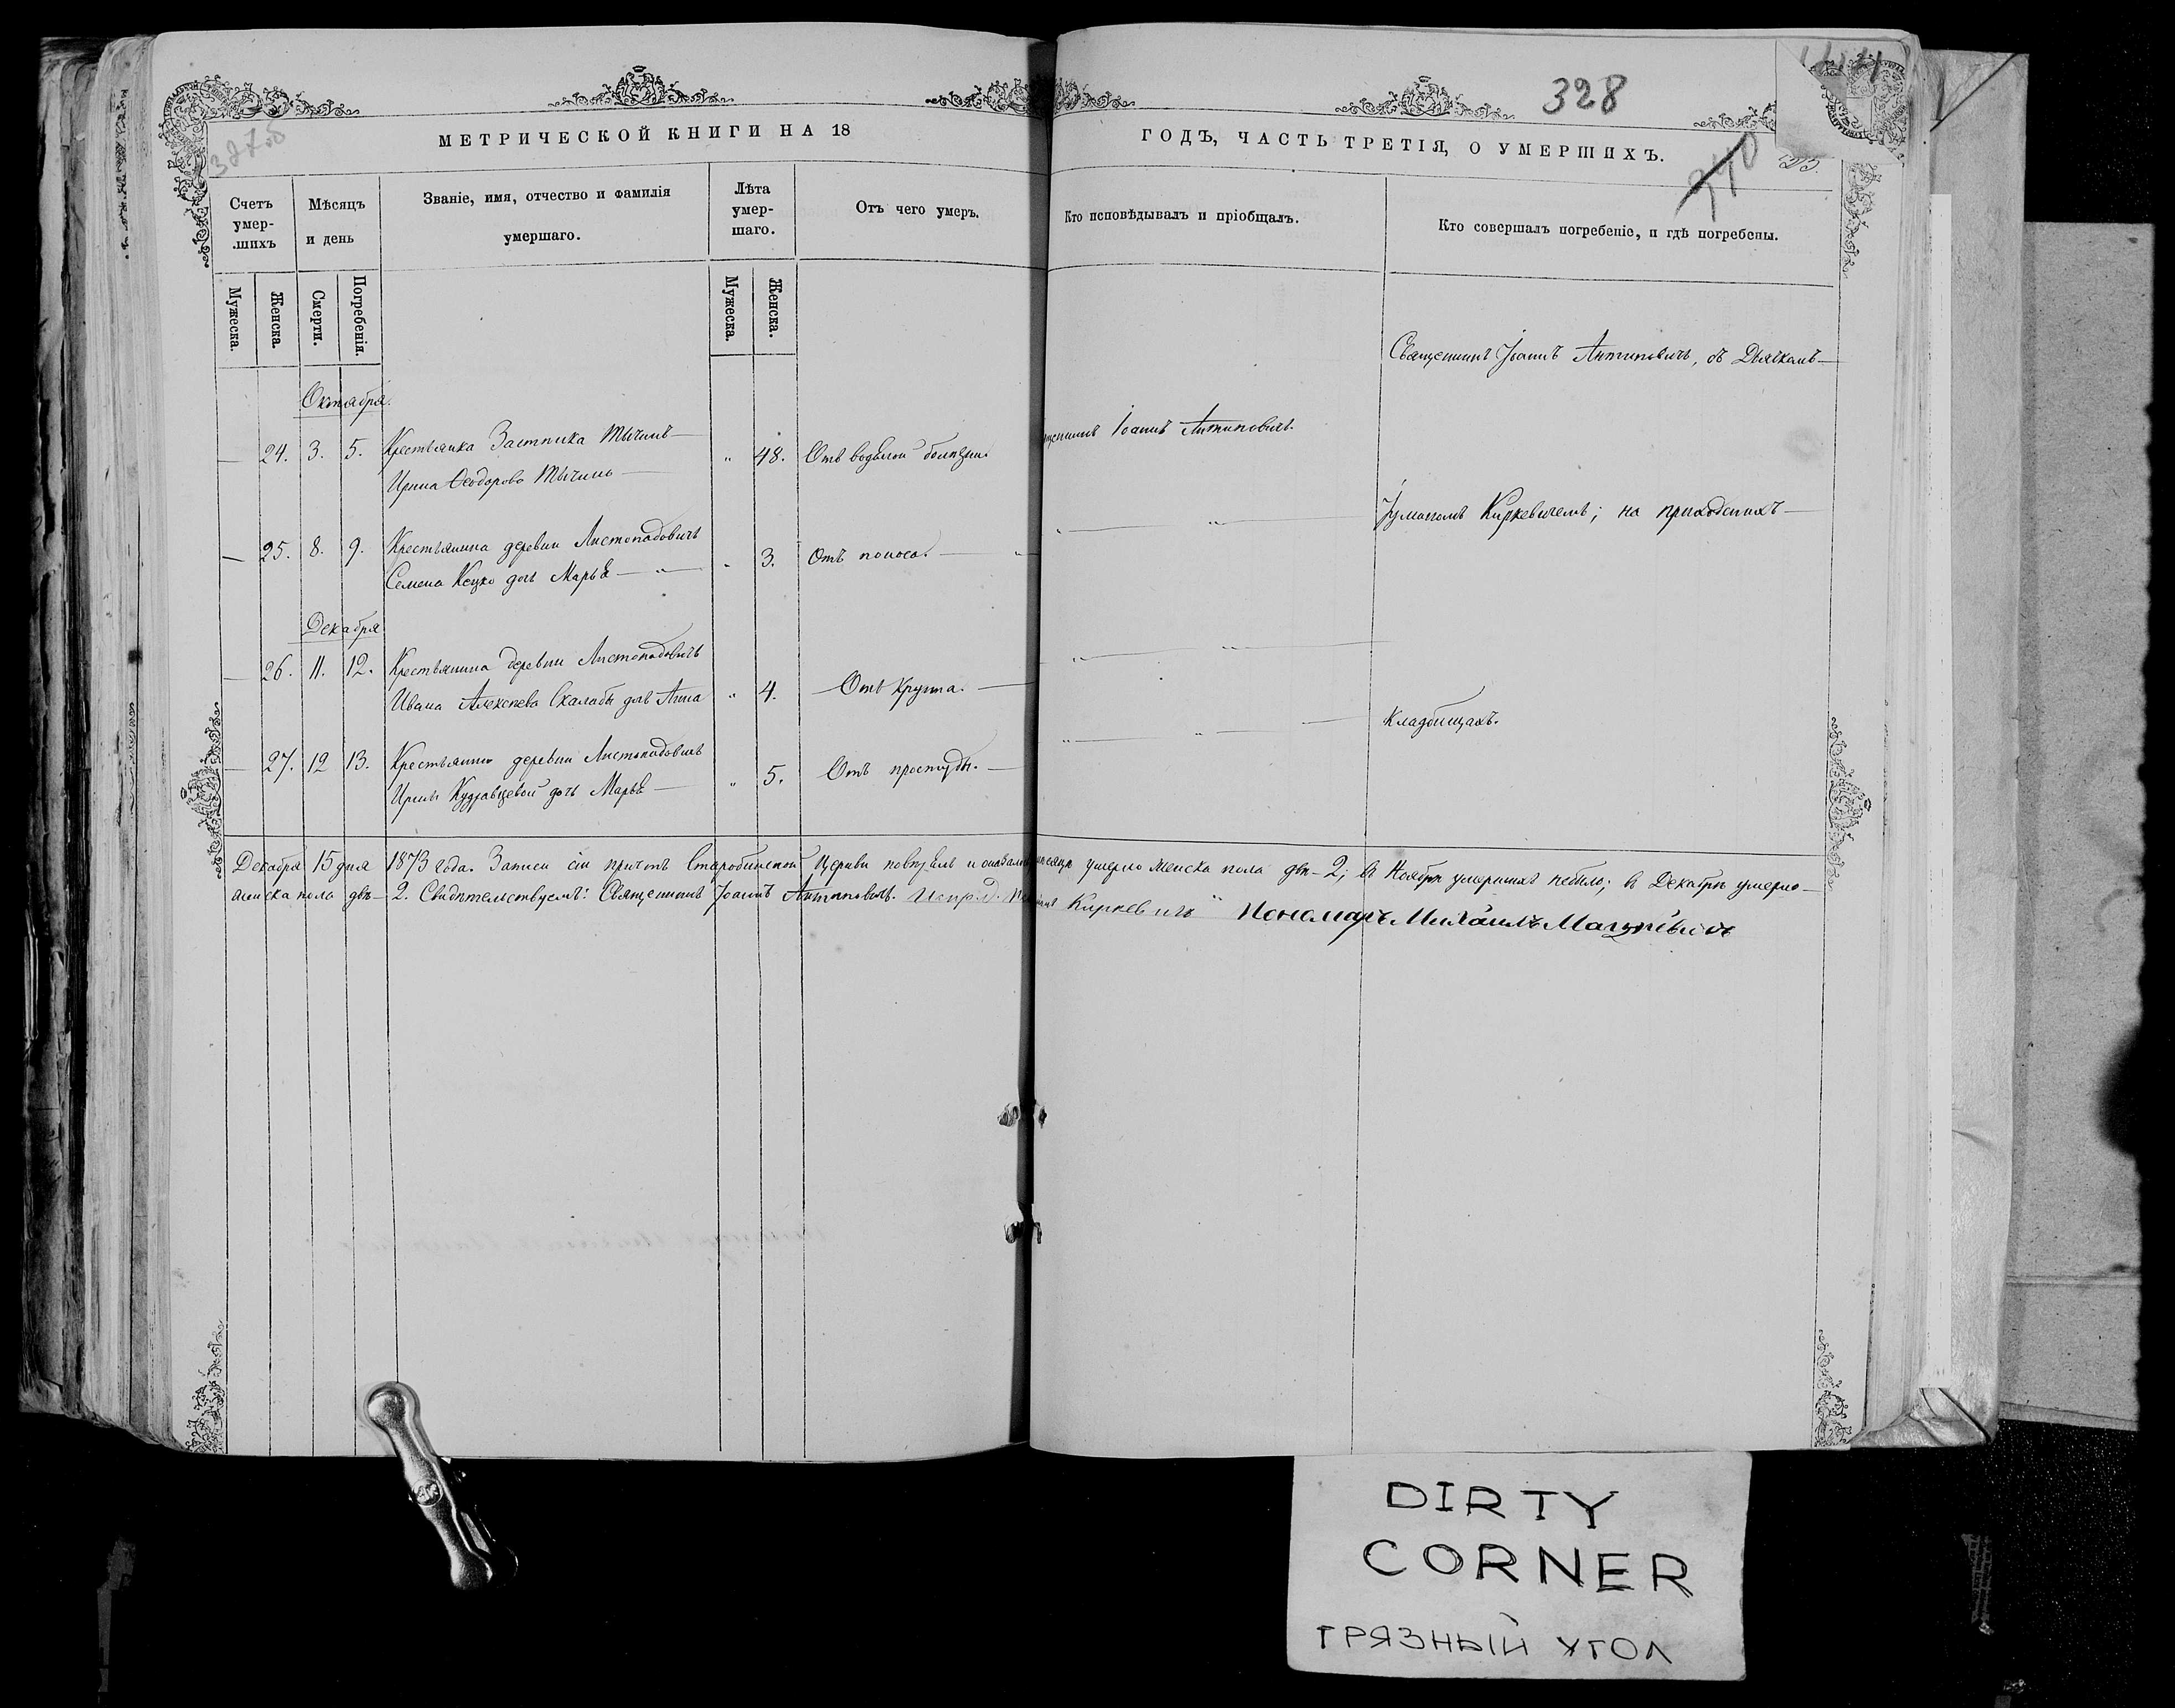 328
МЕТРИЧЕСКОЙ КНИГИ НА 18
ГОДЪ, ЧАСТЬ ТРЕТІЯ, О УМЕРШИХЪ.
Счетъ умер-
.шихъ
Мѣсяцъ
и день
Званіе, имя, отчество и фамилія
умершаго.
Лѣта
умер-
шаго.
Отъ чего умеръ.
Кто исповѣдывалъ и пріобщалъ.
Кто совершалъ погребеніе, и гдѣ погребены.
Мужеска.
Женска.
Смерти.
Погребенія.
Мужеска.
Женска.
Священникъ Іоаннъ Антиповичъ, съ Дьячкомъ
Октября.
— 24. 3. 5. Крестьянка Тычинъ „ 48. Отъ водяной болѣзни. Іоаннъ Антиповичъ.
Ирина Ѳеодорова Тычинъ
Киркевичемъ; на приходскихъ
— 25. 8. 9. Крестьянина деревни Листопадовичъ 3. Отъ поноса. „
Семена Кецко дочь Марья „
Декабря
— 26. 11. 12. Крестьянина деревни Листопадовичъ „ 4. Отъ Круппа. „ „
Ивана Алексѣева Скалабы дочь Анна
кладбищахъ.
— 27. 12 13. Крестьянки деревни Листопадовичъ „ 5. Отъ простуды. „ „
Ирины Кудравцевой дочь Марья
Декабря 15 дня 1873 года. Записи сіи причтъ Старобинской Церкви повѣрялъ и умерло женска пола двѣ — 2; въ Ноябрѣ умершихъ небыло; въ Декабрѣ умерло —
женска пола двѣ — 2. Свидѣтельствуемъ: Священникъ Іоаннъ Антиповичъ. Испр. д. Киркевичъ Пономарь Михаилъ Мацкевичъ
DIRTY
CORNER
ГРЯЗНЫЙ УГОЛ